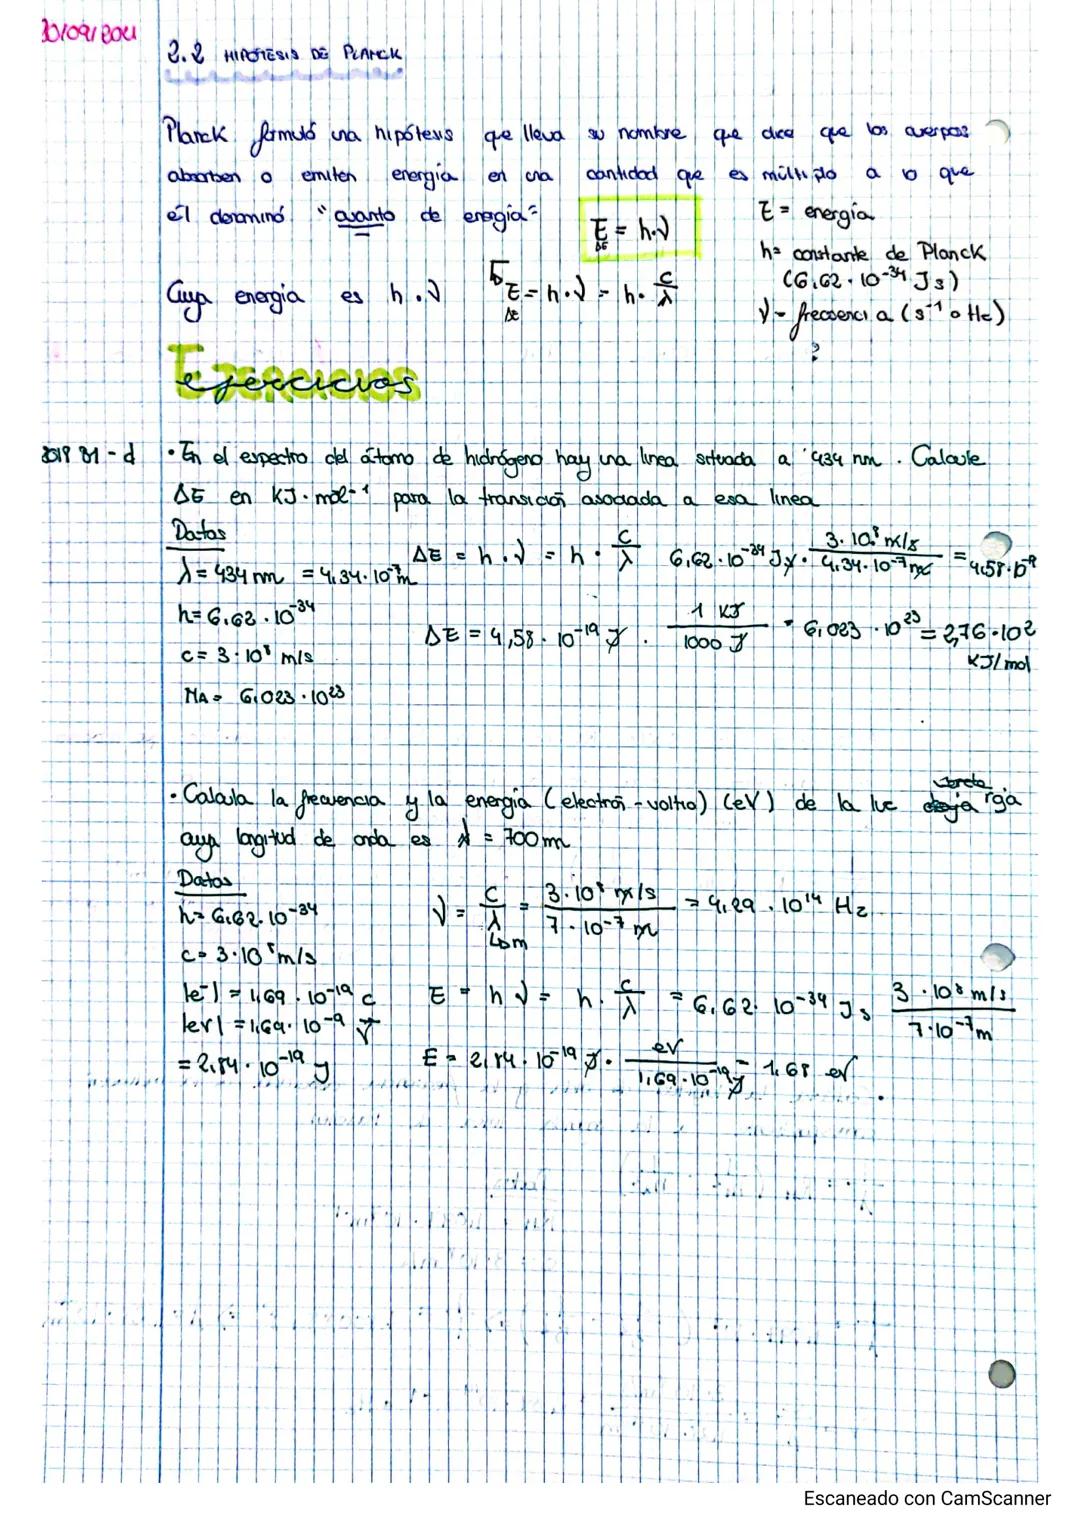 30/09/2021
2.2 HIPÓTESIS DE PLANCK
Planck formuló una hipótesis que lleva su nombre que dice que los cuerpos
absorben o emiten energía en una cantidad que es múltiplo a lo que
él denominó "cuanto de energía"
E = h·ν
ΔE
E = energía
h = constante de Planck
(6,62·10⁻³⁴ Js)
ν = frecuencia (s⁻¹ o Hz)
?
Cuya energía es h.ν
E = h·ν = h· c/λ
ΔE
Ejercicios
2019 B1-d
• En el espectro del átomo de hidrógeno hay una línea situada a 434 nm. Calcule
ΔE en KJ·mol⁻¹ para la transición asociada a esa línea
Datos
λ = 434 nm = 4,34·10⁻⁷m
h = 6,62·10⁻³⁴
c = 3·10⁸ m/s
NA = 6,023·10²³
ΔE = h·ν = h· c/λ 6,62·10⁻³⁴ Js · 3·10⁸ m/s / 4,34·10⁻⁷m = 4,58·10⁻¹⁹
ΔE = 4,58·10⁻¹⁹ J · 1 KJ / 1000 J · 6,023·10²³ = 2,76·10²
KJ/mol
• Calcula la frecuencia y la energía (electrón-voltio) (eV) de la luz roja
cuya longitud de onda es λ = 700 nm
Datos
h = 6,62·10⁻³⁴
c = 3·10⁸ m/s
|e⁻| = 1,69·10⁻¹⁹ C
= 2,84·10⁻¹⁹ J
ν = c/λ = 3·10⁸ m/s / 7·10⁻⁷ m = 4,29·10¹⁴ Hz
↳m
E = hν = h· c/λ = 6,62·10⁻³⁴ Js 3·10⁸ m/s / 7·10⁻⁷m
E = 2,84·10⁻¹⁹ J · eV / 1,69·10⁻¹⁹ J = 1,68 eV
Escaneado con CamScanner